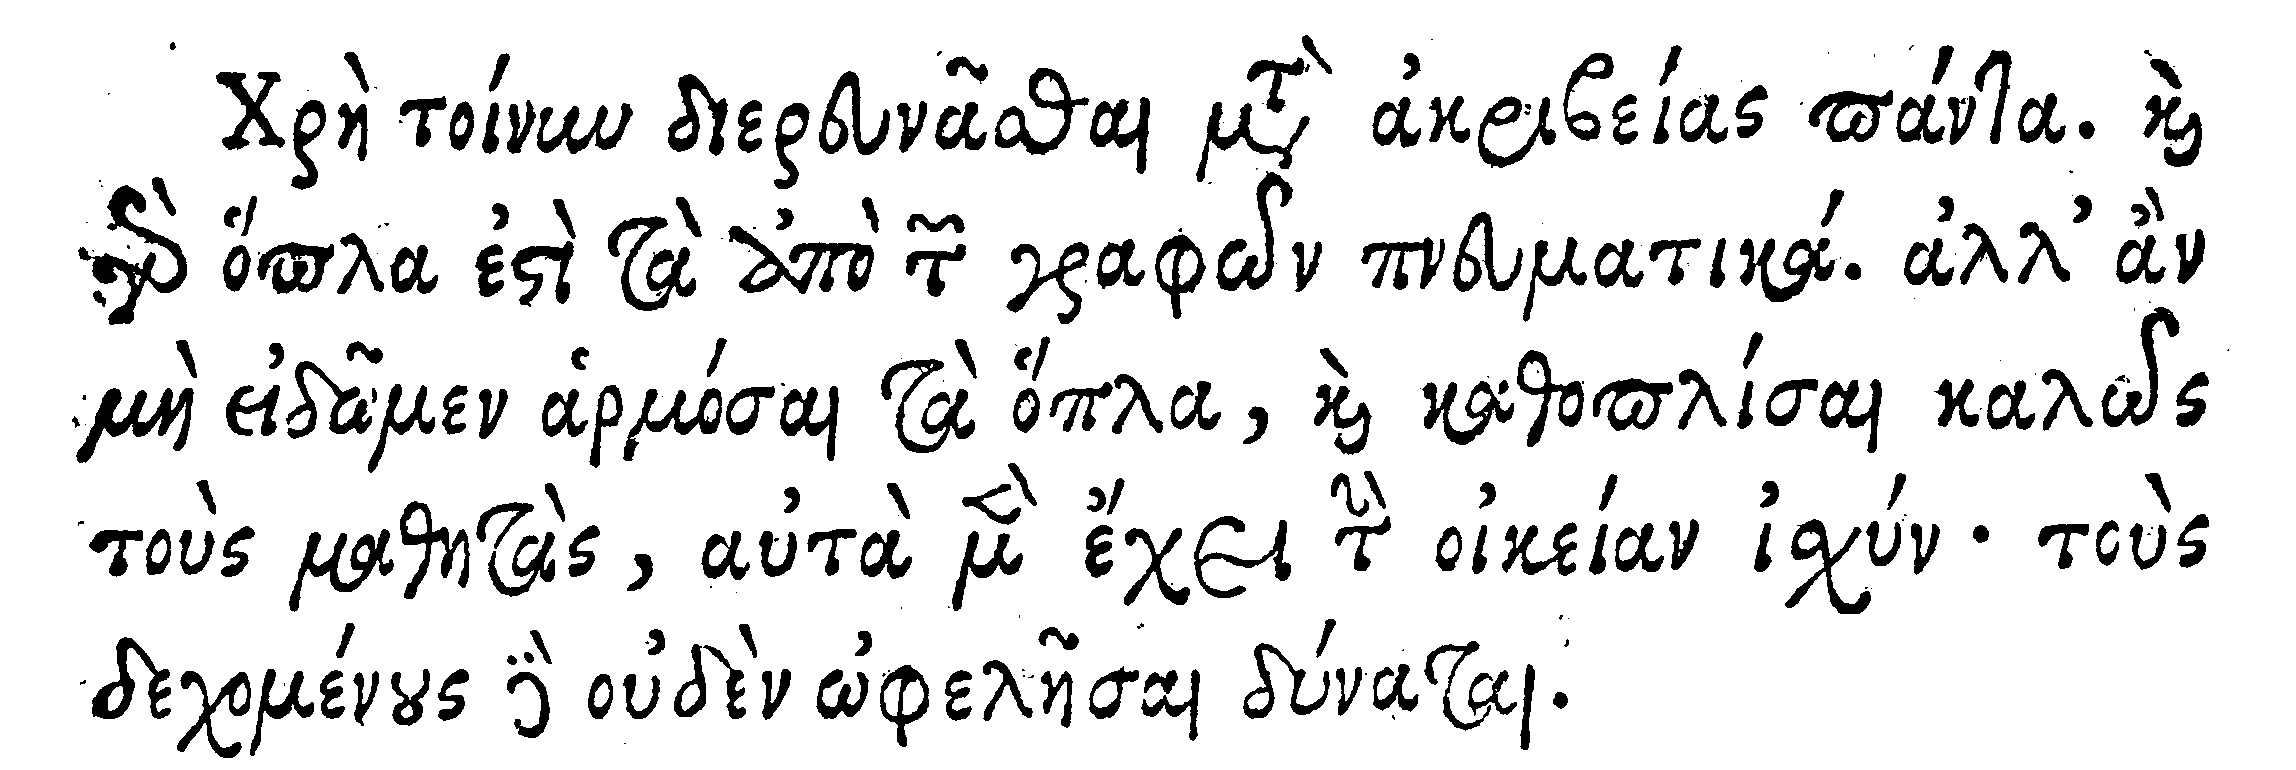 Χρὴ τοίνυν διερευνᾶσθαι μετὰ ἀκριβείας πάντα. καὶ
γὰρ ὅπλα ἐστὶ τὰ ἀπὸ τῶν γραφῶν πνευματικά. ἀλλ' ἂν
μὴ εἰδῶμεν ἁρμόσαι τὰ ὅπλα, καὶ καθοπλίσαι καλῶς
τοὺς μαθητὰς, αὐτὰ μὲν ἔχει τὴν οἰκείαν ἰσχύν· τοὺς
δεχομένους δὲ οὐδὲν ὠφελῆσαι δύναται.